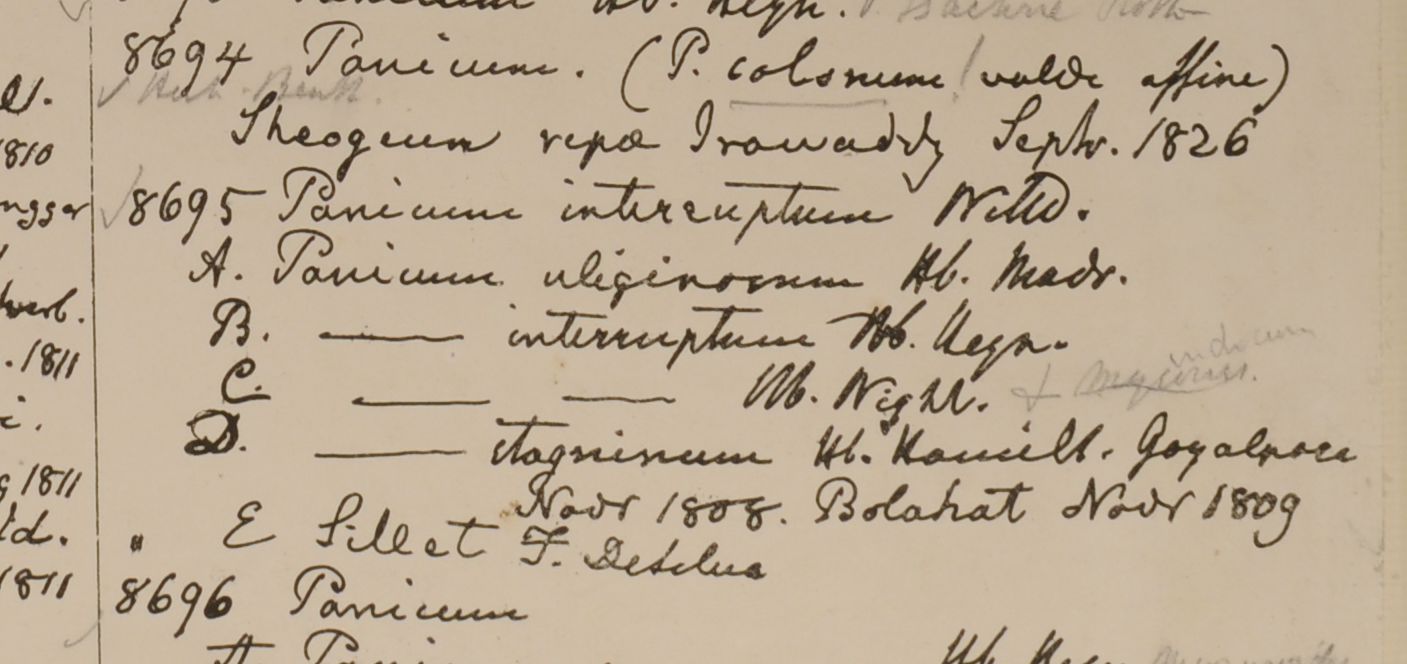 Hb. Heyn.
8694 Panicum. (P. colonum! valde affine)
Herb. Benth.
Sheogeun ripa Irawaddy Septr. 1826
8695 Panicum interruptum Willd.
A. Panicum uliginosum Hb. Madr.
B. — interruptum Hb. Heyn.
C. — — Hb. Wight.
indicum
D. — stagninum Hb. Hamilt. Goyalpara
Novr 1808. Bolahat Novr 1809
" E Sillet F. Desilva
8696 Panicum
A Pani Hb. Heyn
1810
ngger
. 1811
1811
1811